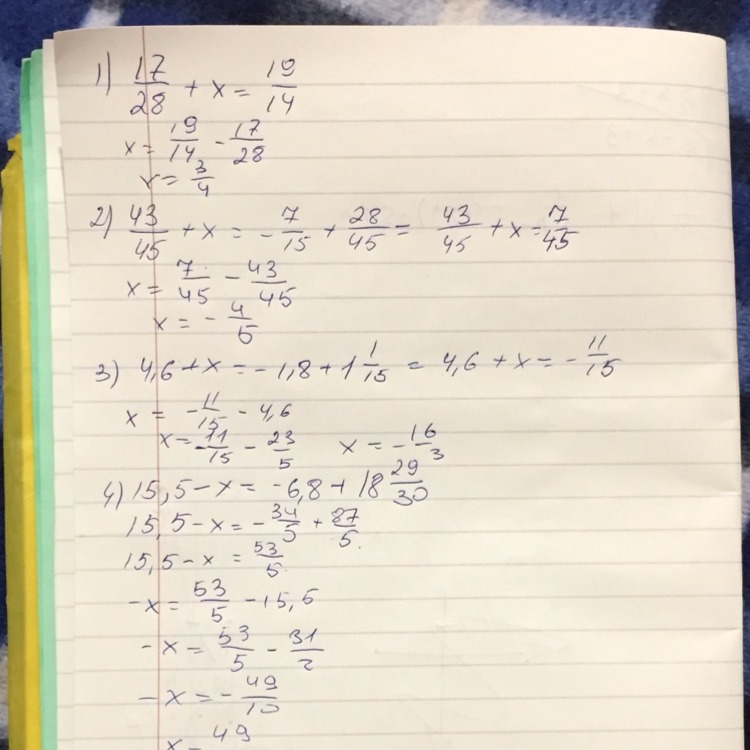 1) 17/28 + x = 19/14
x = 19/14 - 17/28
x = 3/4
2) 43/45 + x = - 7/15 + 28/45 = 43/45 + x = 7/45
x = 7/45 - 43/45
x = - 4/5
3) 4,6 + x = - 1,8 + 1 1/15 = 4,6 + x = - 11/15
x = - 11/15 - 4,6
x = - 11/15 - 23/5 x = - 16/3
4) 15,5 - x = - 6,8 + 18 29/30
15,5 - x = - 34/5 + 87/5
15,5 - x = 53/5
-x = 53/5 - 15,5
-x = 53/5 - 31/2
-x = - 49/10
x = 49